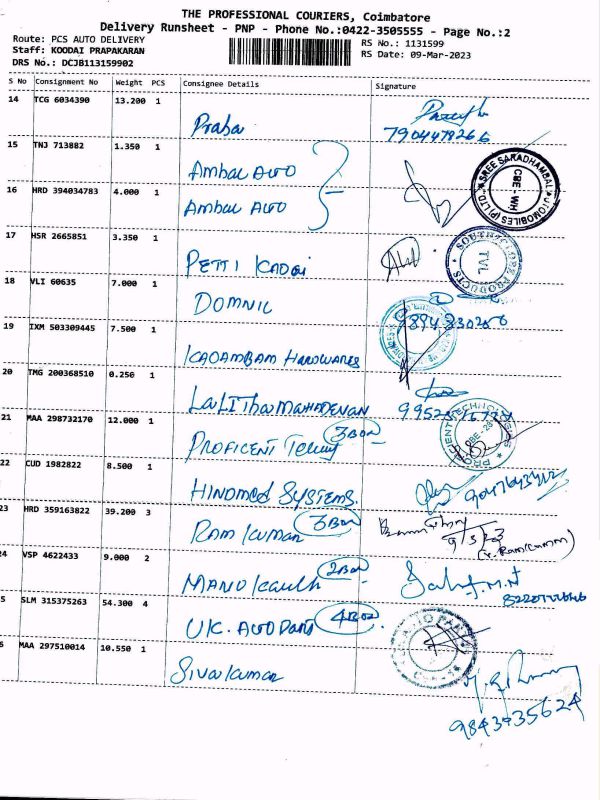 THE PROFESSIONAL COURIERS, Coimbatore
Delivery Runsheet - PNP - Phone No.:0422-3505555 - Page No.:2
Route: PCS AUTO DELIVERY
RS No.: 1131599
Staff: KOODAI PRAPAKARAN
RS Date: 09-Mar-2023
DRS No.: DCJB113159902
S No Consignment No Weight PCS Consignee Details Signature
14 TCG 6034390 13.200 1
Praba 7904478266
15 TNJ 713882 1.350 1
Ambal Auto
SREE SARADHAMBAL AUTOMOBILES (P) LTD CBE - WH
16 HRD 394034783 4.000 1
Ambal Auto
17 HSR 2665851 3.350 1
PETTI KADAI
SOUTH SLOPE PRODUCTS TVL
18 VLI 60635 7.000 1
DOMNIC
9894830256
19 IXM 503309445 7.500 1
KADAMBAM HARDWARES
20 TMG 200368510 0.250 1
LALITHA MAHADEVAN
21 MAA 298732170 12.000 1
3 Box
PROFICENT
PROFICIENT TECHNOLOGIES
22 CUD 1982822 8.500 1
HINDMED SYSTEMS.
23 HRD 359163822 39.200 3
RAM KUMAR 3 Box
9/3/23
24 VSP 4622433 9.000 2
2 Box
25 SLM 315375263 54.300 4
U.K. AUTO PARTS 4 Box
26 MAA 297510014 10.550 1
Sivakumar
9843935624